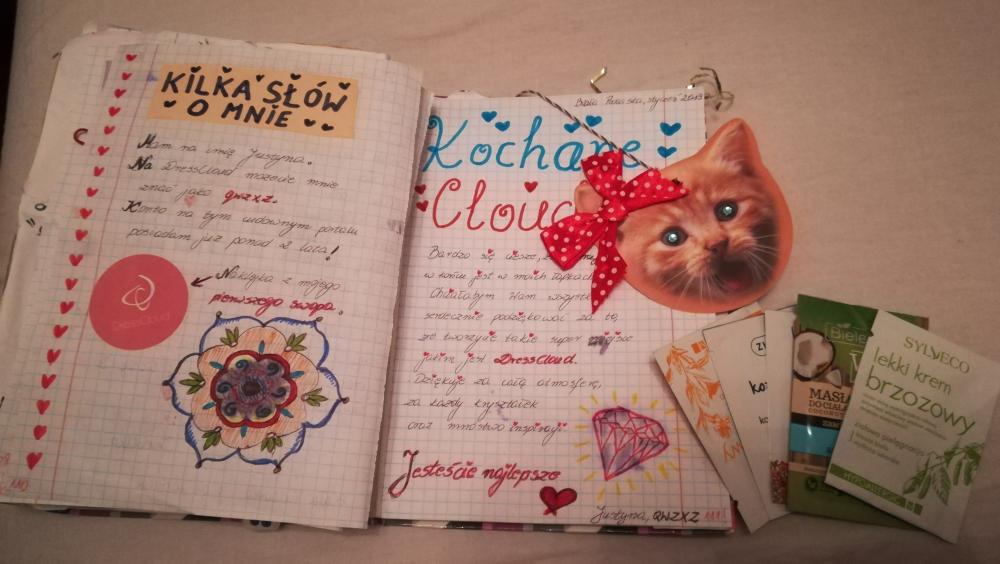 KILKA SŁÓW
O MNIE
Mam na imię Justyna.
Na DressCloud możecie mnie
znać jako qwzxz.
Konto na tym cudownym portalu
posiadam już ponad 2 lata!
Naklejka z mojego
pierwszego swapa.
DressCloud
110
Biała Piska, styczeń 2019
Kochane
Cloud
Bardzo się cieszę,
w końcu jest w moich łapkach
Chciałabym Wam wszystkim
serdecznie podziękować za to,
że tworzycie takie super miejsce
jakim jest DressCloud.
Dziękuję za całą atmosferę,
za każdy kryształek
oraz mnóstwo inspiracji
Jesteście najlepsze
Justyna, qwzxz 111
Biele
MASŁO
DO CIAŁA
COCONUT
SYLVECO
lekki krem
brzozowy
HYPOALERGIC